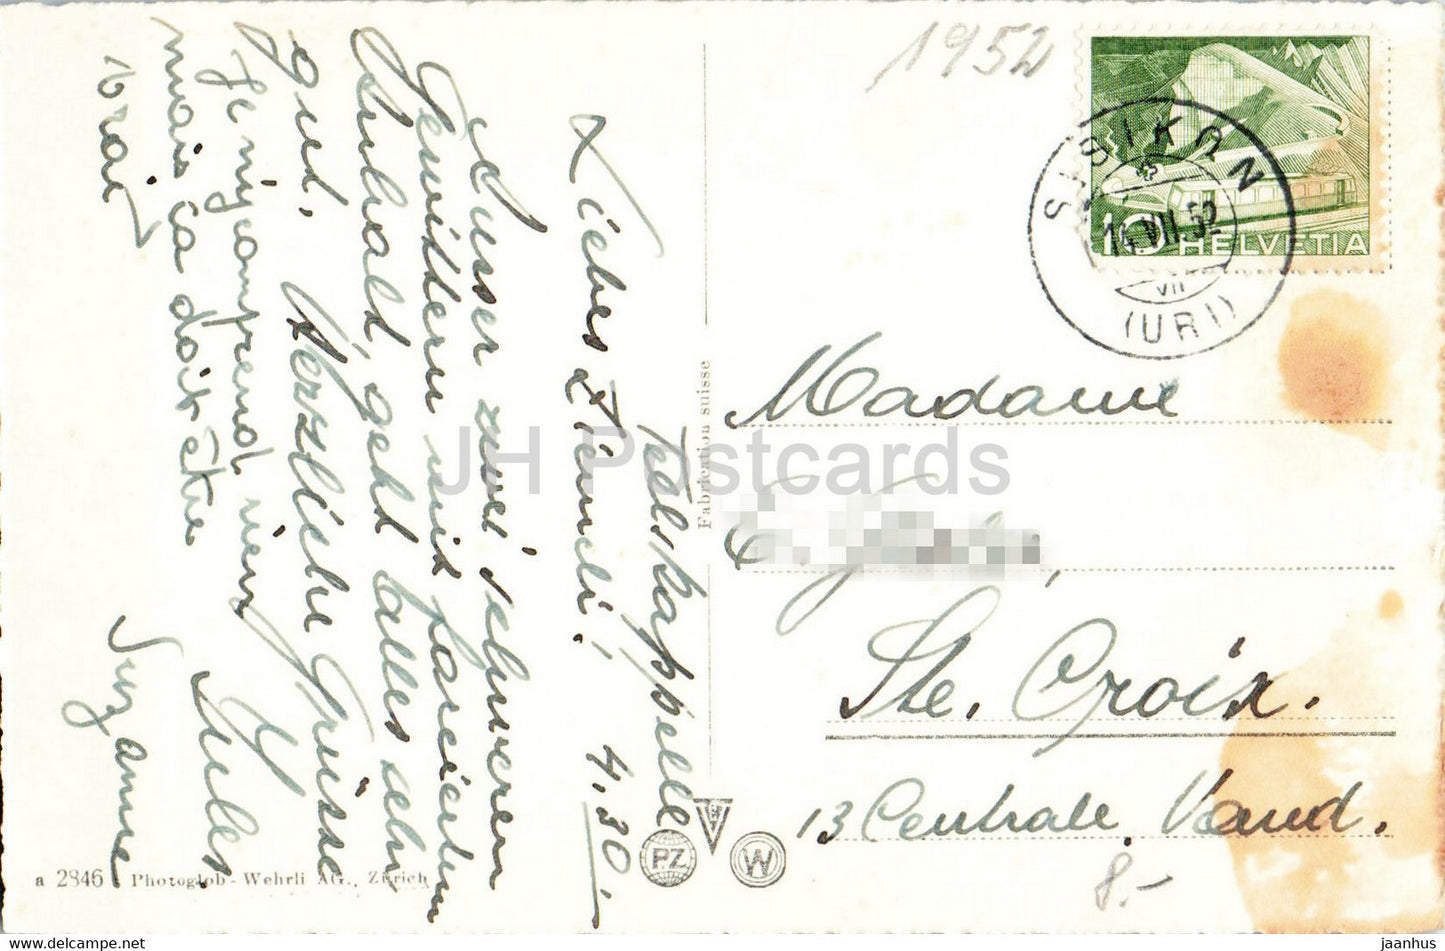 Tellskappelle
Liebes Stineli! 4.30.
Ausser zwei schweren
Gewittern mit forciertem
Inhalt, geht alles sehr
gut. Herzliche Grüsse
Jules
Je n'y comprend rien
mais ça doit être
vrai
Suzanne
1952
10 HELVETIA
SISIKON
14.VII.52
VII
(URI)
Madame
Ste. Croix.
13 Centrale, Vaud.
8.-
Fabrication suisse
PZ
W
a 2846 Photoglob-Wehrli AG., Zürich
JH Postcards
https://www.hippostcard.com
jaanhus